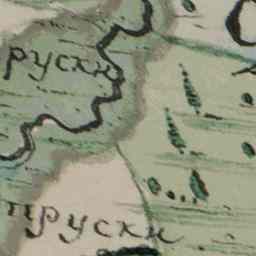 руски
пруски